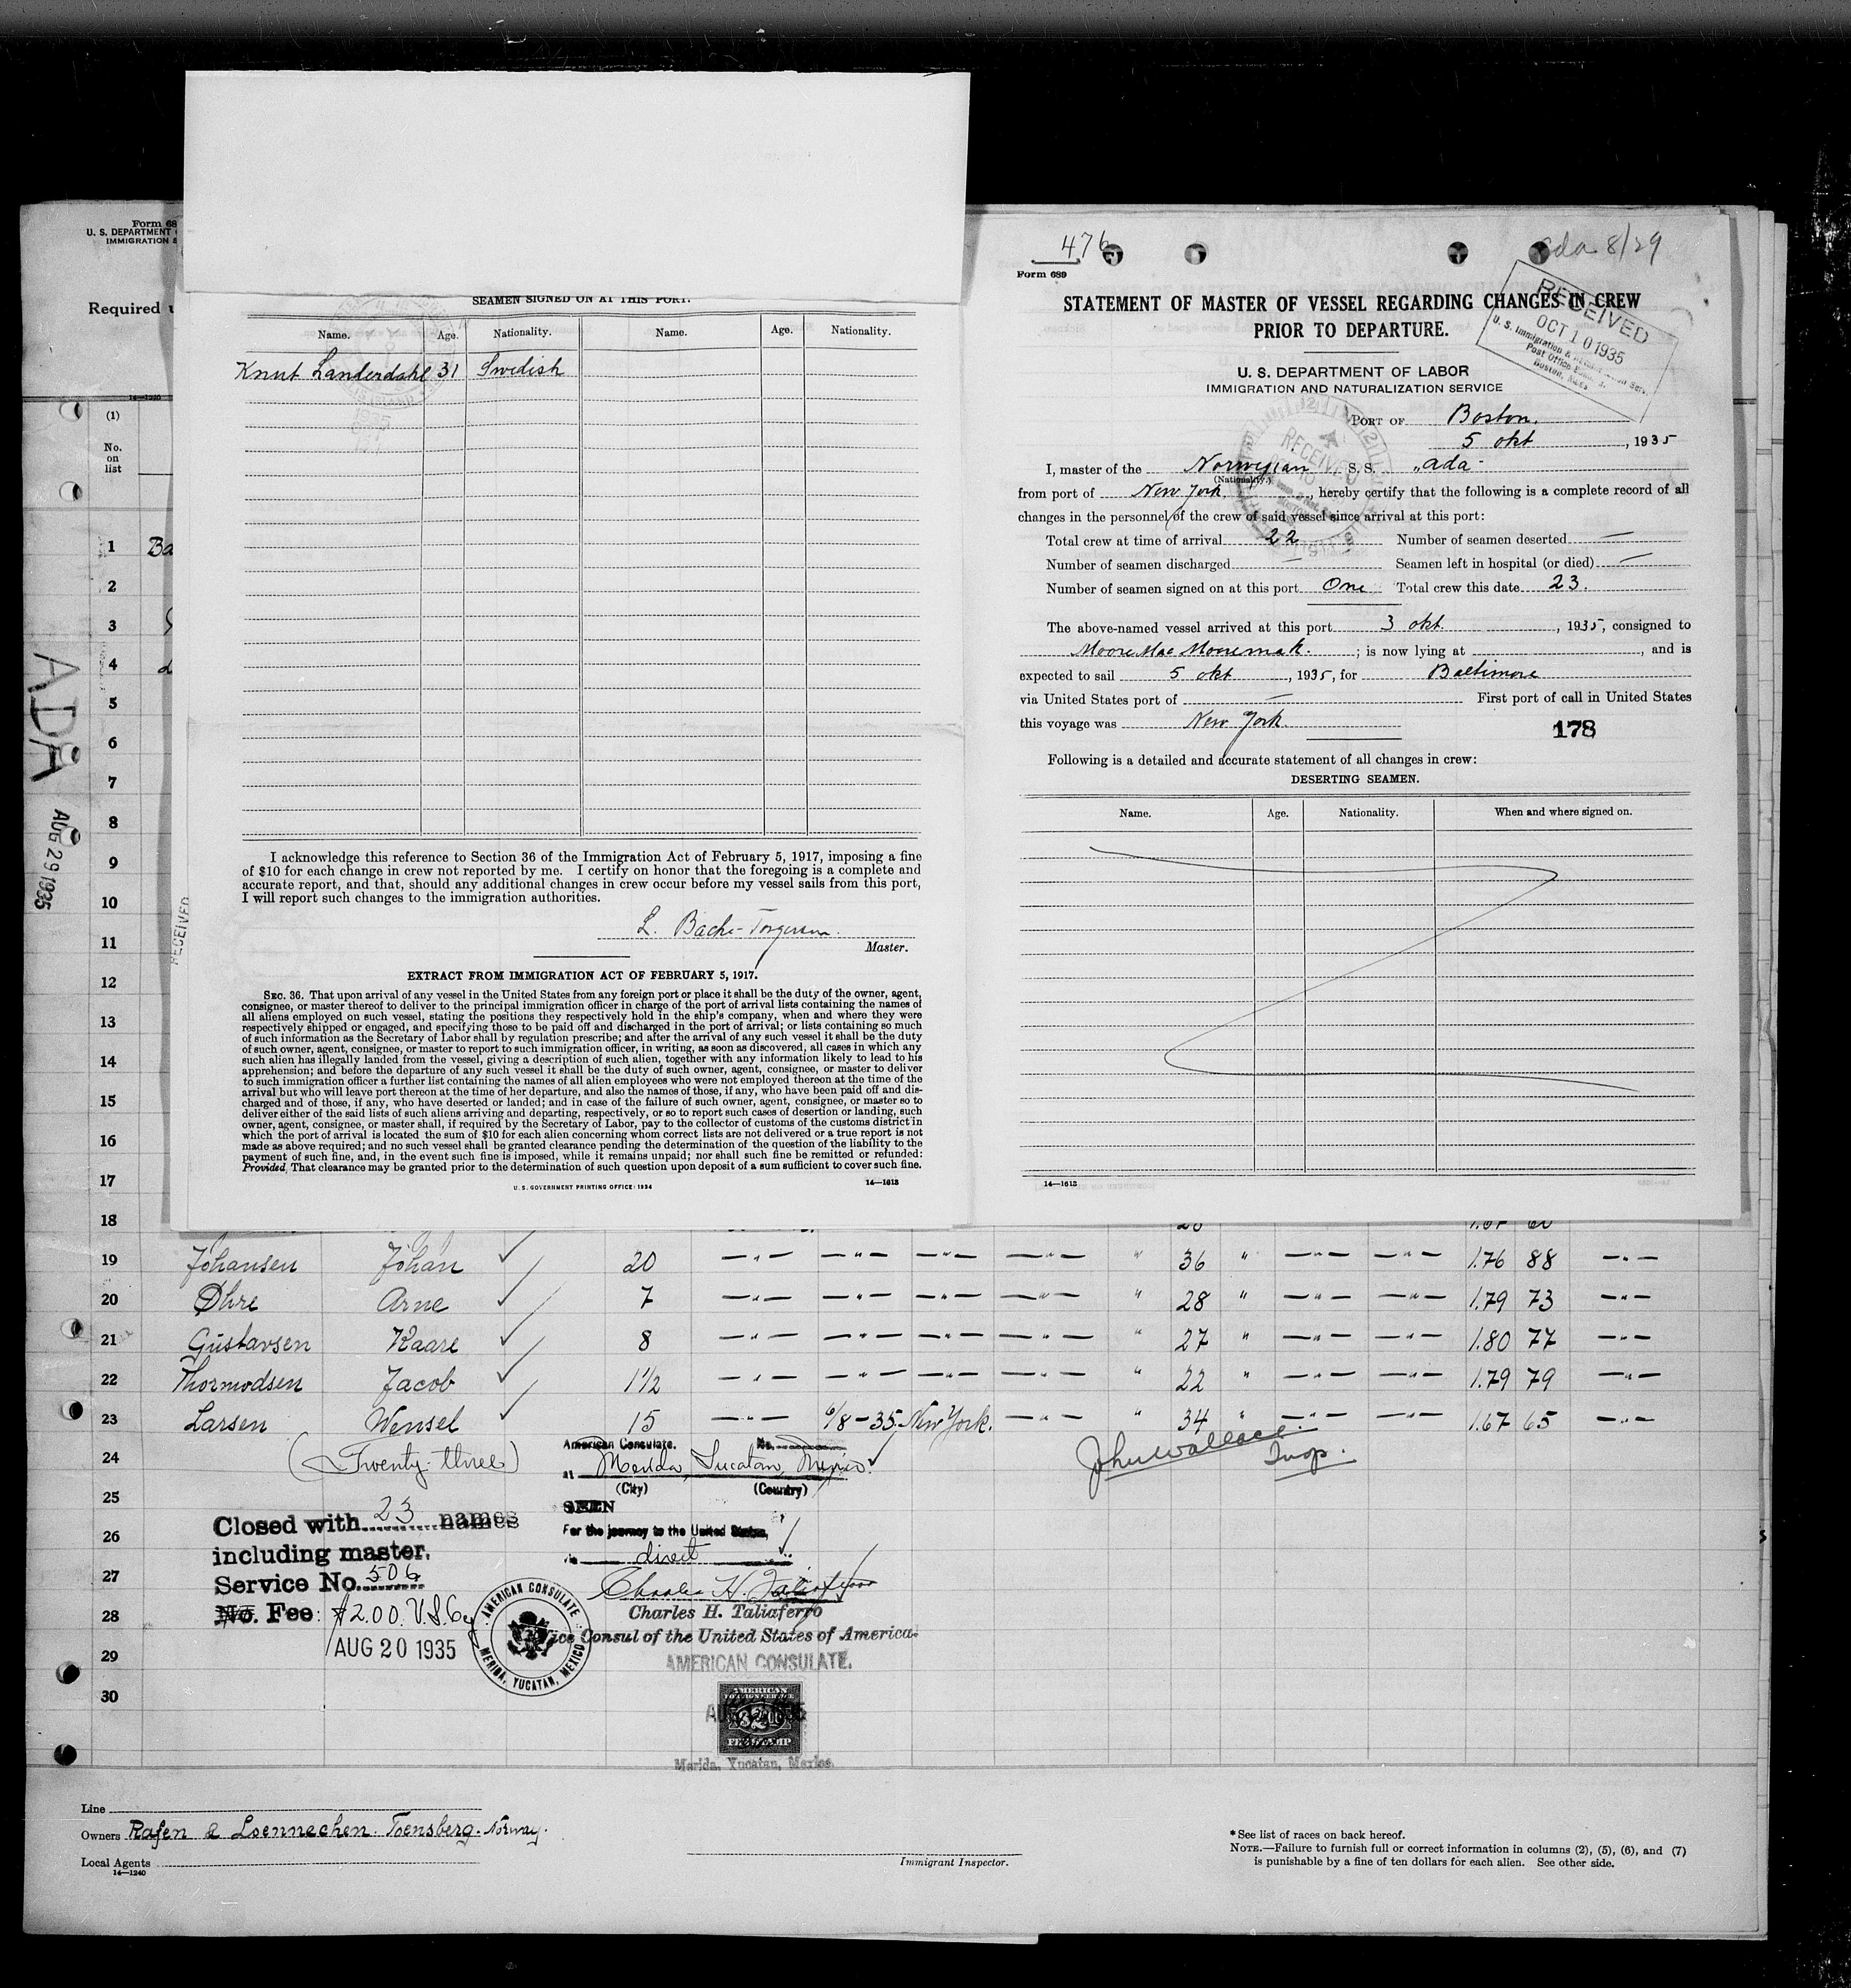 Form 68
U. S. DEPARTMENT
IMMIGRATION S
Required u
14—1240
(1)
No.
on
list
1 Ba
2
3
4
5
6
7
8
9
10
11
12
13
14
15
16
17
18
ADA
AUG 29 1935
RECEIVED
SEAMEN SIGNED ON AT THIS PORT.
Name. Age. Nationality. Name. Age. Nationality.
Knut Landerdahl 31 Swedish
I acknowledge this reference to Section 36 of the Immigration Act of February 5, 1917, imposing a fine
of $10 for each change in crew not reported by me. I certify on honor that the foregoing is a complete and
accurate report, and that, should any additional changes in crew occur before my vessel sails from this port,
I will report such changes to the immigration authorities.
L. Bache-Torgersen.
Master.
EXTRACT FROM IMMIGRATION ACT OF FEBRUARY 5, 1917.
SEC. 36. That upon arrival of any vessel in the United States from any foreign port or place it shall be the duty of the owner, agent,
consignee, or master thereof to deliver to the principal immigration officer in charge of the port of arrival lists containing the names of
all aliens employed on such vessel, stating the positions they respectively hold in the ship's company, when and where they were
respectively shipped or engaged, and specifying those to be paid off and discharged in the port of arrival; or lists containing so much
of such information as the Secretary of Labor shall by regulation prescribe; and after the arrival of any such vessel it shall be the duty
of such owner, agent, consignee, or master to report to such immigration officer, in writing, as soon as discovered, all cases in which any
such alien has illegally landed from the vessel, giving a description of such alien, together with any information likely to lead to his
apprehension; and before the departure of any such vessel it shall be the duty of such owner, agent, consignee, or master to deliver
to such immigration officer a further list containing the names of all alien employees who were not employed thereon at the time of the
arrival but who will leave port thereon at the time of her departure, and also the names of those, if any, who have been paid off and dis-
charged and of those, if any, who have deserted or landed; and in case of the failure of such owner, agent, consignee, or master so to
deliver either of the said lists of such aliens arriving and departing, respectively, or so to report such cases of desertion or landing, such
owner, agent, consignee, or master shall, if required by the Secretary of Labor, pay to the collector of customs of the customs district in
which the port of arrival is located the sum of $10 for each alien concerning whom correct lists are not delivered or a true report is not
made as above required; and no such vessel shall be granted clearance pending the determination of the question of the liability to the
payment of such fine, and, in the event such fine is imposed, while it remains unpaid; nor shall such fine be remitted or refunded:
Provided, That clearance may be granted prior to the determination of such question upon deposit of a sum sufficient to cover such fine.
U. S. GOVERNMENT PRINTING OFFICE: 1934 14—1613
476
Ada 8/29
Form 689
STATEMENT OF MASTER OF VESSEL REGARDING CHANGES IN CREW
PRIOR TO DEPARTURE.
RECEIVED
OCT 10 1935
U. S. Immigration & Naturalization Ser.
Boston, Mass.
U. S. DEPARTMENT OF LABOR
IMMIGRATION AND NATURALIZATION SERVICE
RECEIVED
PORT OF Boston.
5 okt , 1935
I, master of the Norwegian S. S. „Ada"
(Nationality.)
from port of New York, hereby certify that the following is a complete record of all
changes in the personnel of the crew of said vessel since arrival at this port:
Total crew at time of arrival 22 Number of seamen deserted —
Number of seamen discharged Seamen left in hospital (or died) —
Number of seamen signed on at this port One Total crew this date 23.
The above-named vessel arrived at this port 3 okt. , 1935, consigned to
Moore Mac Mooremak. ; is now lying at , and is
expected to sail 5 okt , 1935, for Baltimore
via United States port of — First port of call in United States
this voyage was New York.
178
Following is a detailed and accurate statement of all changes in crew:
DESERTING SEAMEN.
Name. Age. Nationality. When and where signed on.
14—1613
19 Johansen Johan ✓ 20 —"— —"— —"— —"— " 36 " —"— —"— 1.76 88 —"—
20 Øhre Arne ✓ 7 —"— —"— —"— —"— " 28 " —"— —"— 1.79 73 —"—
21 Gustavsen Kaare ✓ 8 —"— —"— —"— —"— " 27 " —"— —"— 1.80 77 —"—
22 Thormodsen Jacob ✓ 1½ —"— —"— —"— —"— " 22 " —"— —"— 1.79 79 —"—
23 Larsen Wensel ✓ 15 —"— 6/8-35. New York. —"— " 34 " —"— —"— 1.67 65 —"—
24 (Twenty-three)
25
26
27
28
29
30
American Consulate. No.
at Merida, Yucatan, Mexico.
(City) (Country)
SEEN
For the journey to the United States,
direct
Charles H. Taliaferro
Charles H. Taliaferro
Vice Consul of the United States of America.
AMERICAN CONSULATE.
John Wallace
Insp.
Closed with 23 names
including master.
Service No. 506
No. Fee: $2.00 U.S.Cy
AUG 20 1935
AMERICAN CONSULATE
MERIDA, YUCATAN, MEXICO
AMERICAN
FOREIGN SERVICE
$2.00
FEE STAMP
Merida, Yucatan, Mexico.
Line
Owners Rafen & Loennechen. Toensberg. Norway.
Local Agents
14—1240
Immigrant Inspector.
* See list of races on back hereof.
NOTE.—Failure to furnish full or correct information in columns (2), (5), (6), and (7)
is punishable by a fine of ten dollars for each alien. See other side.